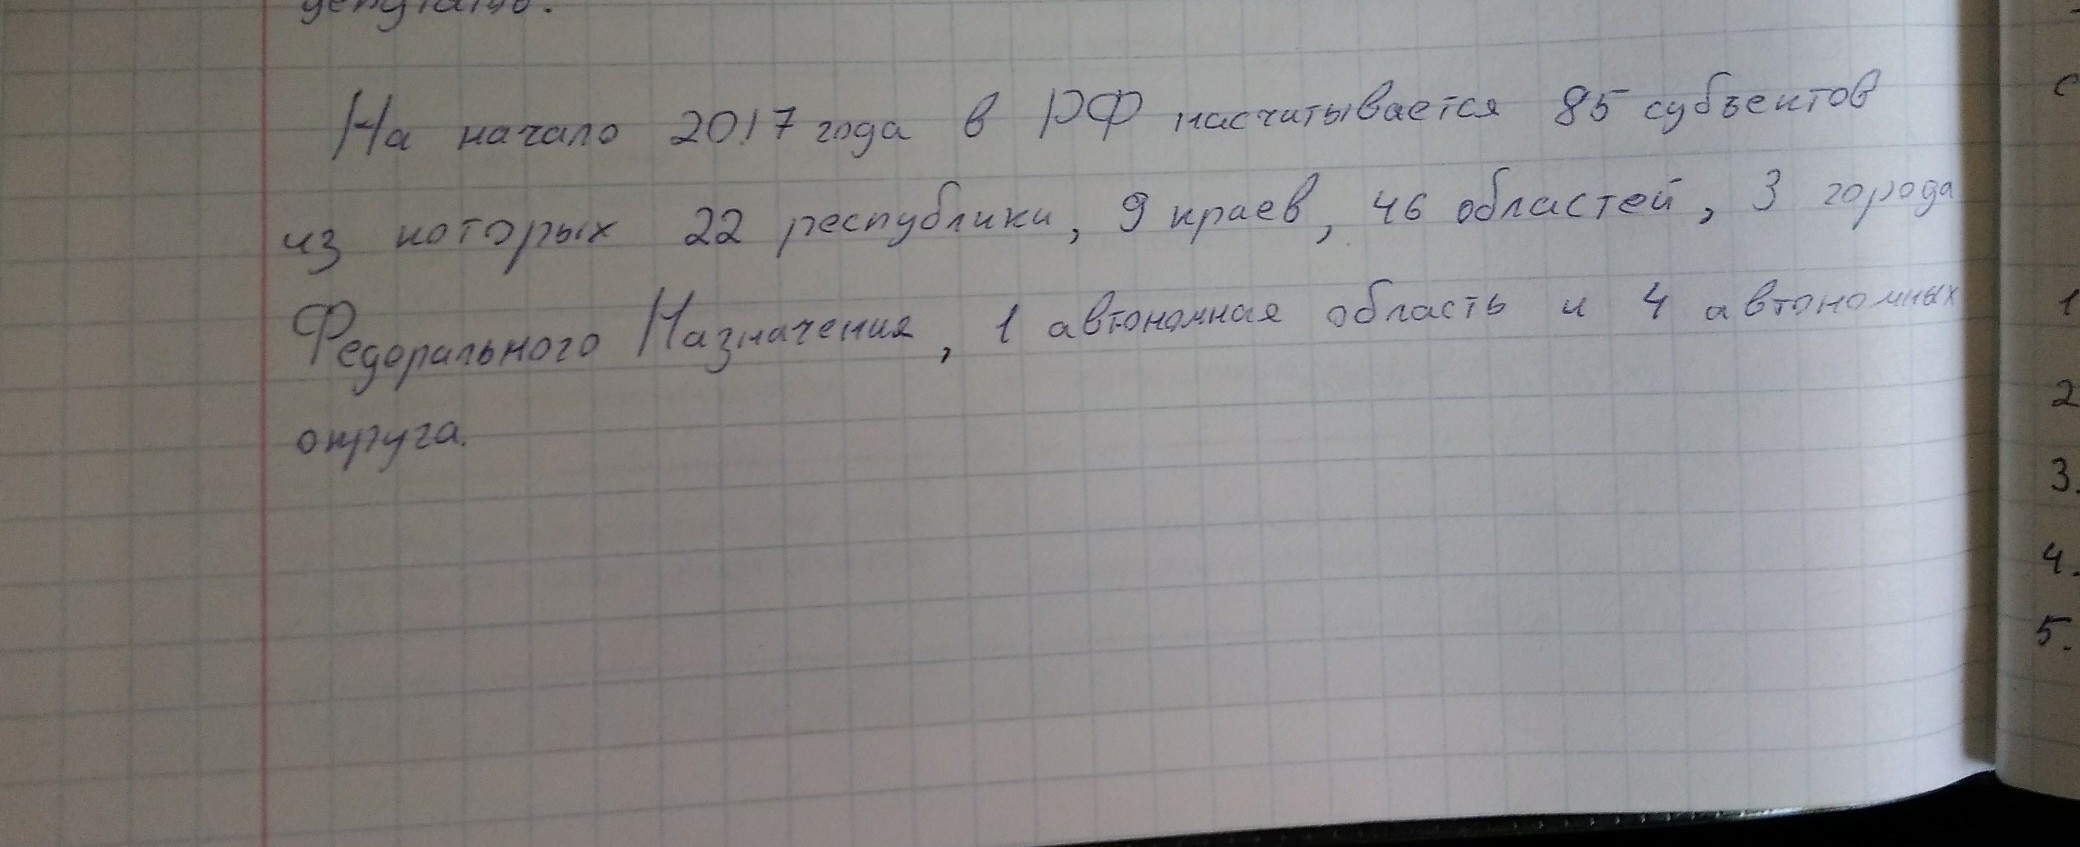 На начало 2017 года в РФ насчитывается 85 субъектов
из которых 22 республики, 9 краев, 46 областей, 3 города
Федерального Назначения, 1 автономная область и 4 автономных
округа.
с
1
2
3.
4.
5.